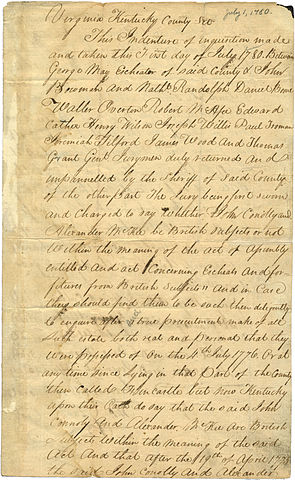 July 1, 1780.
Virginia Kentucky County Sct
This Indenture of inquisition made
and taken this First day of July 1780. Between
George May Escheator of said County & John
Bowman and Nathl Randolph Daniel Boone
Waller Overton Robert McAfee Edward
Cather Henry Wilson Joseph Willis Paul Froman
Jeremiah Tilford James Wood And Thomas
Grant Gent. Jurymen duly returned And
impannelled by the Sheriff of said County
of the other part. The Jury being first sworn
and Charged to say whither John Conolly and
Alexander McKee be British subjects or not
Within the meaning of the act of Assembly
entitled and act Concerning Escheats And for=
fitures from British Subjects and in Case
they should find them to be such then deligently
to enquire after a true presentment make of all
such estate both real and Personal that they
were possessed of On the 4th July 1776. Or at
any time Since Lying in that Part of the County
then Called Fincastle but Now Kentucky
upon their Oath do say that the said John
Connoly And Alexander McKee Are British
Subjects Within the meaning of the said
Act And that after the 19th of April 1775
the said John Conolly and Alexander